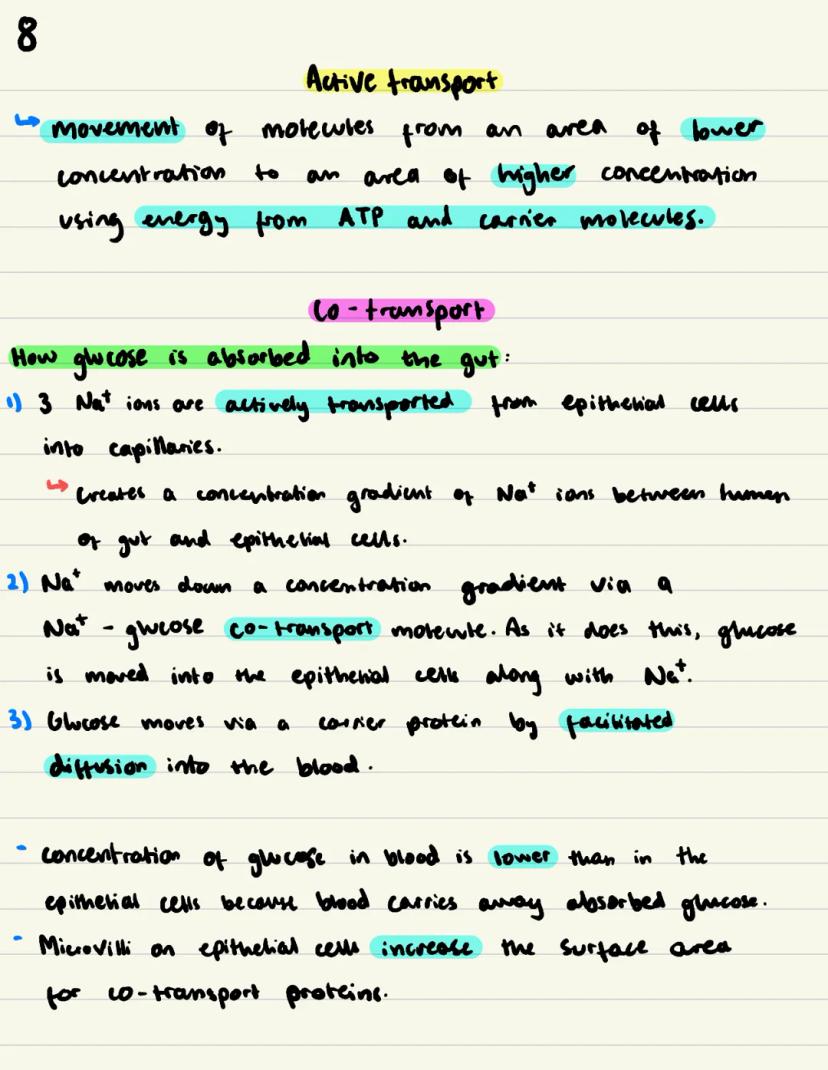 8
Active transport
↳ movement of molecules from an area of lower
concentration to an area of higher concentration
using energy from ATP and carrier molecules.
Co-transport
How glucose is absorbed into the gut:
1) 3 Na⁺ ions are actively transported from epithelial cells
into capillaries.
↳ Creates a concentration gradient of Na⁺ ions between human
of gut and epithelial cells.
2) Na⁺ moves down a concentration gradient via a
Na⁺ - glucose co-transport molecule. As it does this, glucose
is moved into the epithelial cells along with Na⁺.
3) Glucose moves via a carrier protein by facilitated
diffusion into the blood.
- concentration of glucose in blood is lower than in the
epithelial cells because blood carries away absorbed glucose.
- Microvilli on epithelial cells increase the surface area
for co-transport proteins.